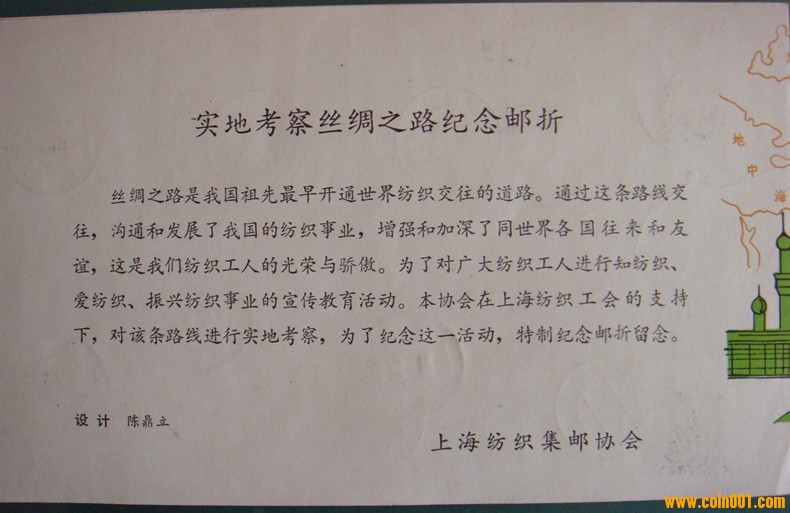 实地考察丝绸之路纪念邮折
丝绸之路是我国祖先最早开通世界纺织交往的道路。通过这条路线交
往，沟通和发展了我国的纺织事业，增强和加深了同世界各国往来和友
谊，这是我们纺织工人的光荣与骄傲。为了对广大纺织工人进行知纺织、
爱纺织、振兴纺织事业的宣传教育活动。本协会在上海纺织工会的支持
下，对该条路线进行实地考察，为了纪念这一活动，特制纪念邮折留念。
设计 陈鼎立
上海纺织集邮协会
地中海
www.coin001.com